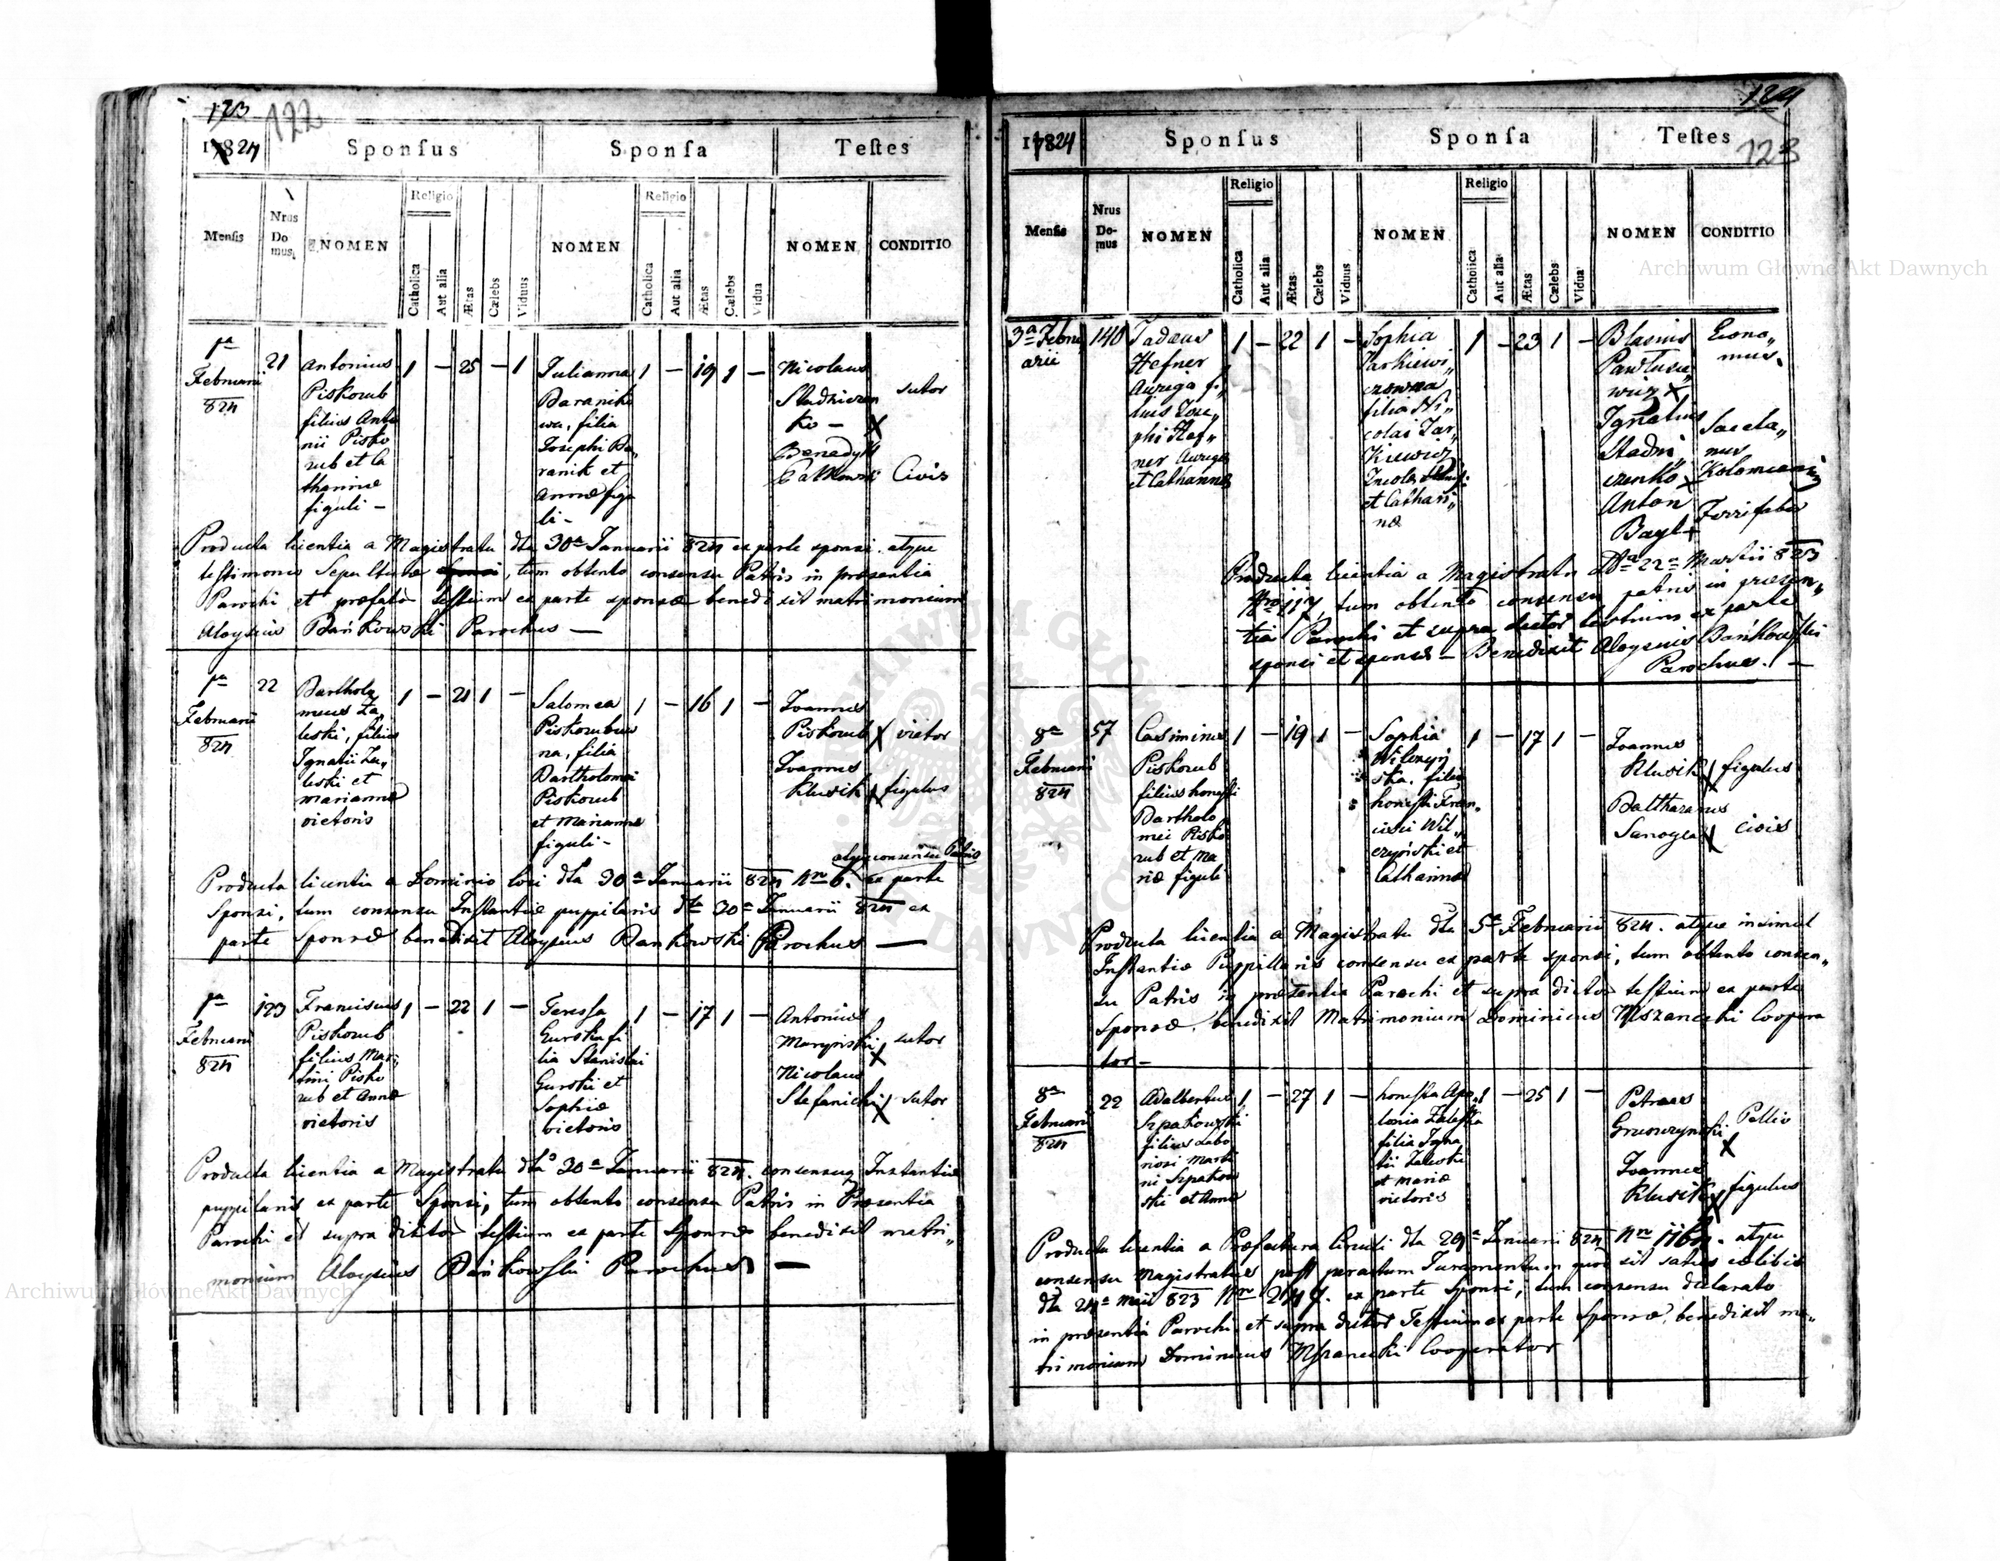 123
122
1824 Sponſus Sponſa Teſtes
Religio Religio
Menſis Nrus Domus NOMEN Catholica Aut alia Ætas Cælebs Viduus NOMEN Catholica Aut alia Ætas Cælebs Vidua NOMEN CONDITIO
1ª
Februarii
824
21
Antonius
Piskorub
filius Anto
nii Pisko
rub et Ca
tharinæ
figuli –
1 – 25 – 1
Julianna
Baranikó
wa, filia
Josephi Ba„
ranik et
Annæ figu
li –
1 – 19 1 –
Nicolaus
Stadniczen
ko – X
sutor
Benedykt
Civis
Producta licentia a Magistratu dta 30ª Januarii 824 ex parte sponsi atque
testimonio Sepulturæ, tum obtento consensu Patris in præsentia
Parochi et præfator testium ex parte sponsæ benedixit matrimonium
Aloysius Bańkowski Parochus —
1ª
Februarii
824
22
Bartholo
meus Za„
leski, filius
Ignatii Za„
leski et
Mariannæ
victoris
1 – 21 1 –
Salomea
Piskorubow
na, filia
Bartholomei
Piskorub
et Mariannæ
figuli –
1 – 16 1 –
Joannes
Piskorub X victor
Joannes
Klusik X figulus
atque consensu Patris
Producta licentia a Dominio loci dta 30ª Januarii 824 Nro 6. ex parte
Sponsi, tum consensu Instantiæ puppilaris dta 30ª Januarii 824 ex
parte Sponsæ benedixit Aloysius Bankowski Parochus —
1ª
Februarii
824
123
Franciscus
Piskorub
filius Mar„
tini Pisko
rub et Annæ
victoris
1 – 22 1 –
Teressa
Gurska fi
lia Stanislai
Gurski et
Sophiæ
victoris
1 – 17 1 –
Antonius
Maryński X sutor
Nicolaus
Stefanicki X sutor
Producta licentia a Magistratu dta 30ª Januarii 824. consensuq Instantiæ
pupilaris ex parte Sponsi, tum obtento consensu Patris in Præsentia
Parochi et supra dictor testium ex parte Sponsæ benedixit matri„
monium Aloysius Bańkowski Parochus —
124
123
1824 Sponſus Sponſa Teſtes
Religio Religio
Menſis Nrus Domus NOMEN Catholica Aut alia Ætas Cælebs Viduus NOMEN Catholica Aut alia Ætas Cælebs Vidua NOMEN CONDITIO
3ª Febru
arii
140
Tadæus
Hefner
Auriga fi„
lius Jose„
phi Hef„
ner Auriga
et Catharinæ
1 – 22 1 –
Sophia
Jarkiewi„
czowna
filia Ni„
colai Jar„
kiewicz
Incolæ
et Cathari„
næ
1 – 23 1 –
Blasius
Pawlusie„
wicz X
Econo„
mus
Ignatius
Stadni„
czenko X
Kolomeansis
Anton
Bayl X
Ferrifaber
Producta licentia a Magistratu Dta 22ª Martii 823
Nro 117, tum obtento consensu patris in præsen„
tia Parochi et supra dictor testium ex parte
sponsi et sponsæ – Benedixit Aloysius Bańkowski
Parochus. —
8ª
Februarii
824
57
Casimirus
Piskorub
filius honesti
Bartholo
mei Pisko
rub et Ma
riæ figuli
1 – 19 1 –
Sophia
Wilczyń
ska, filia
honesti Fran„
cisci Wil„
czyński et
Catharinæ
1 – 17 1 –
Joannes
Klusik X figulus
Balthazarus
Sanoyca X civis
Producta licentia a Magistratu dta 5ª Februarii 824. atque insimul
Instantiæ Puppillaris consensu ex parte sponsi, tum obtento consen„
su Patris in præsentia Parochi et supra dictor testium ex parte
Sponsæ. benedixit Matrimonium Dominicus Mszanecki Coopera
tor –
8ª
Februarii
824
22
Adalbertus
Szpakowski
filius Labo
riosi Marti
ni Szpakow
ski et Annæ
1 – 27 1 –
honesta Apo„
lonia Zaleska
filia Igna
tii Zaleski
et Mariæ
victoris
1 – 25 1 –
Petrus
Gruszczyński X Pellio
Joannes
Klusik X figulus
Producta licentia a Præfectura Circuli dta 29ª Januarii 824 Nro 1164. atque
consensu Magistratus post peractum Juramentum quod sit status cœlibis
dta 24ª Maii 823 Nro 247. ex parte Sponsi, tum consensu declarato
in præsentia Parochi et supra dictor Testium ex parte Sponsæ, benedixit ma„
trimonium Dominicus Mszanecki Cooperator
Archiwum Główne Akt Dawnych